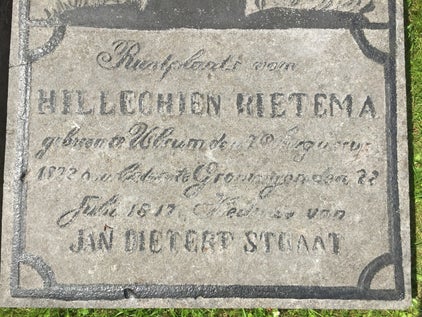 Rustplaats van
HILLECHIEN RIETEMA
geboren te Ulrum den Augustus
en overl. te Groningen den 22
Juli 1817 Weduwe van
JAN DIETERT STRAAT